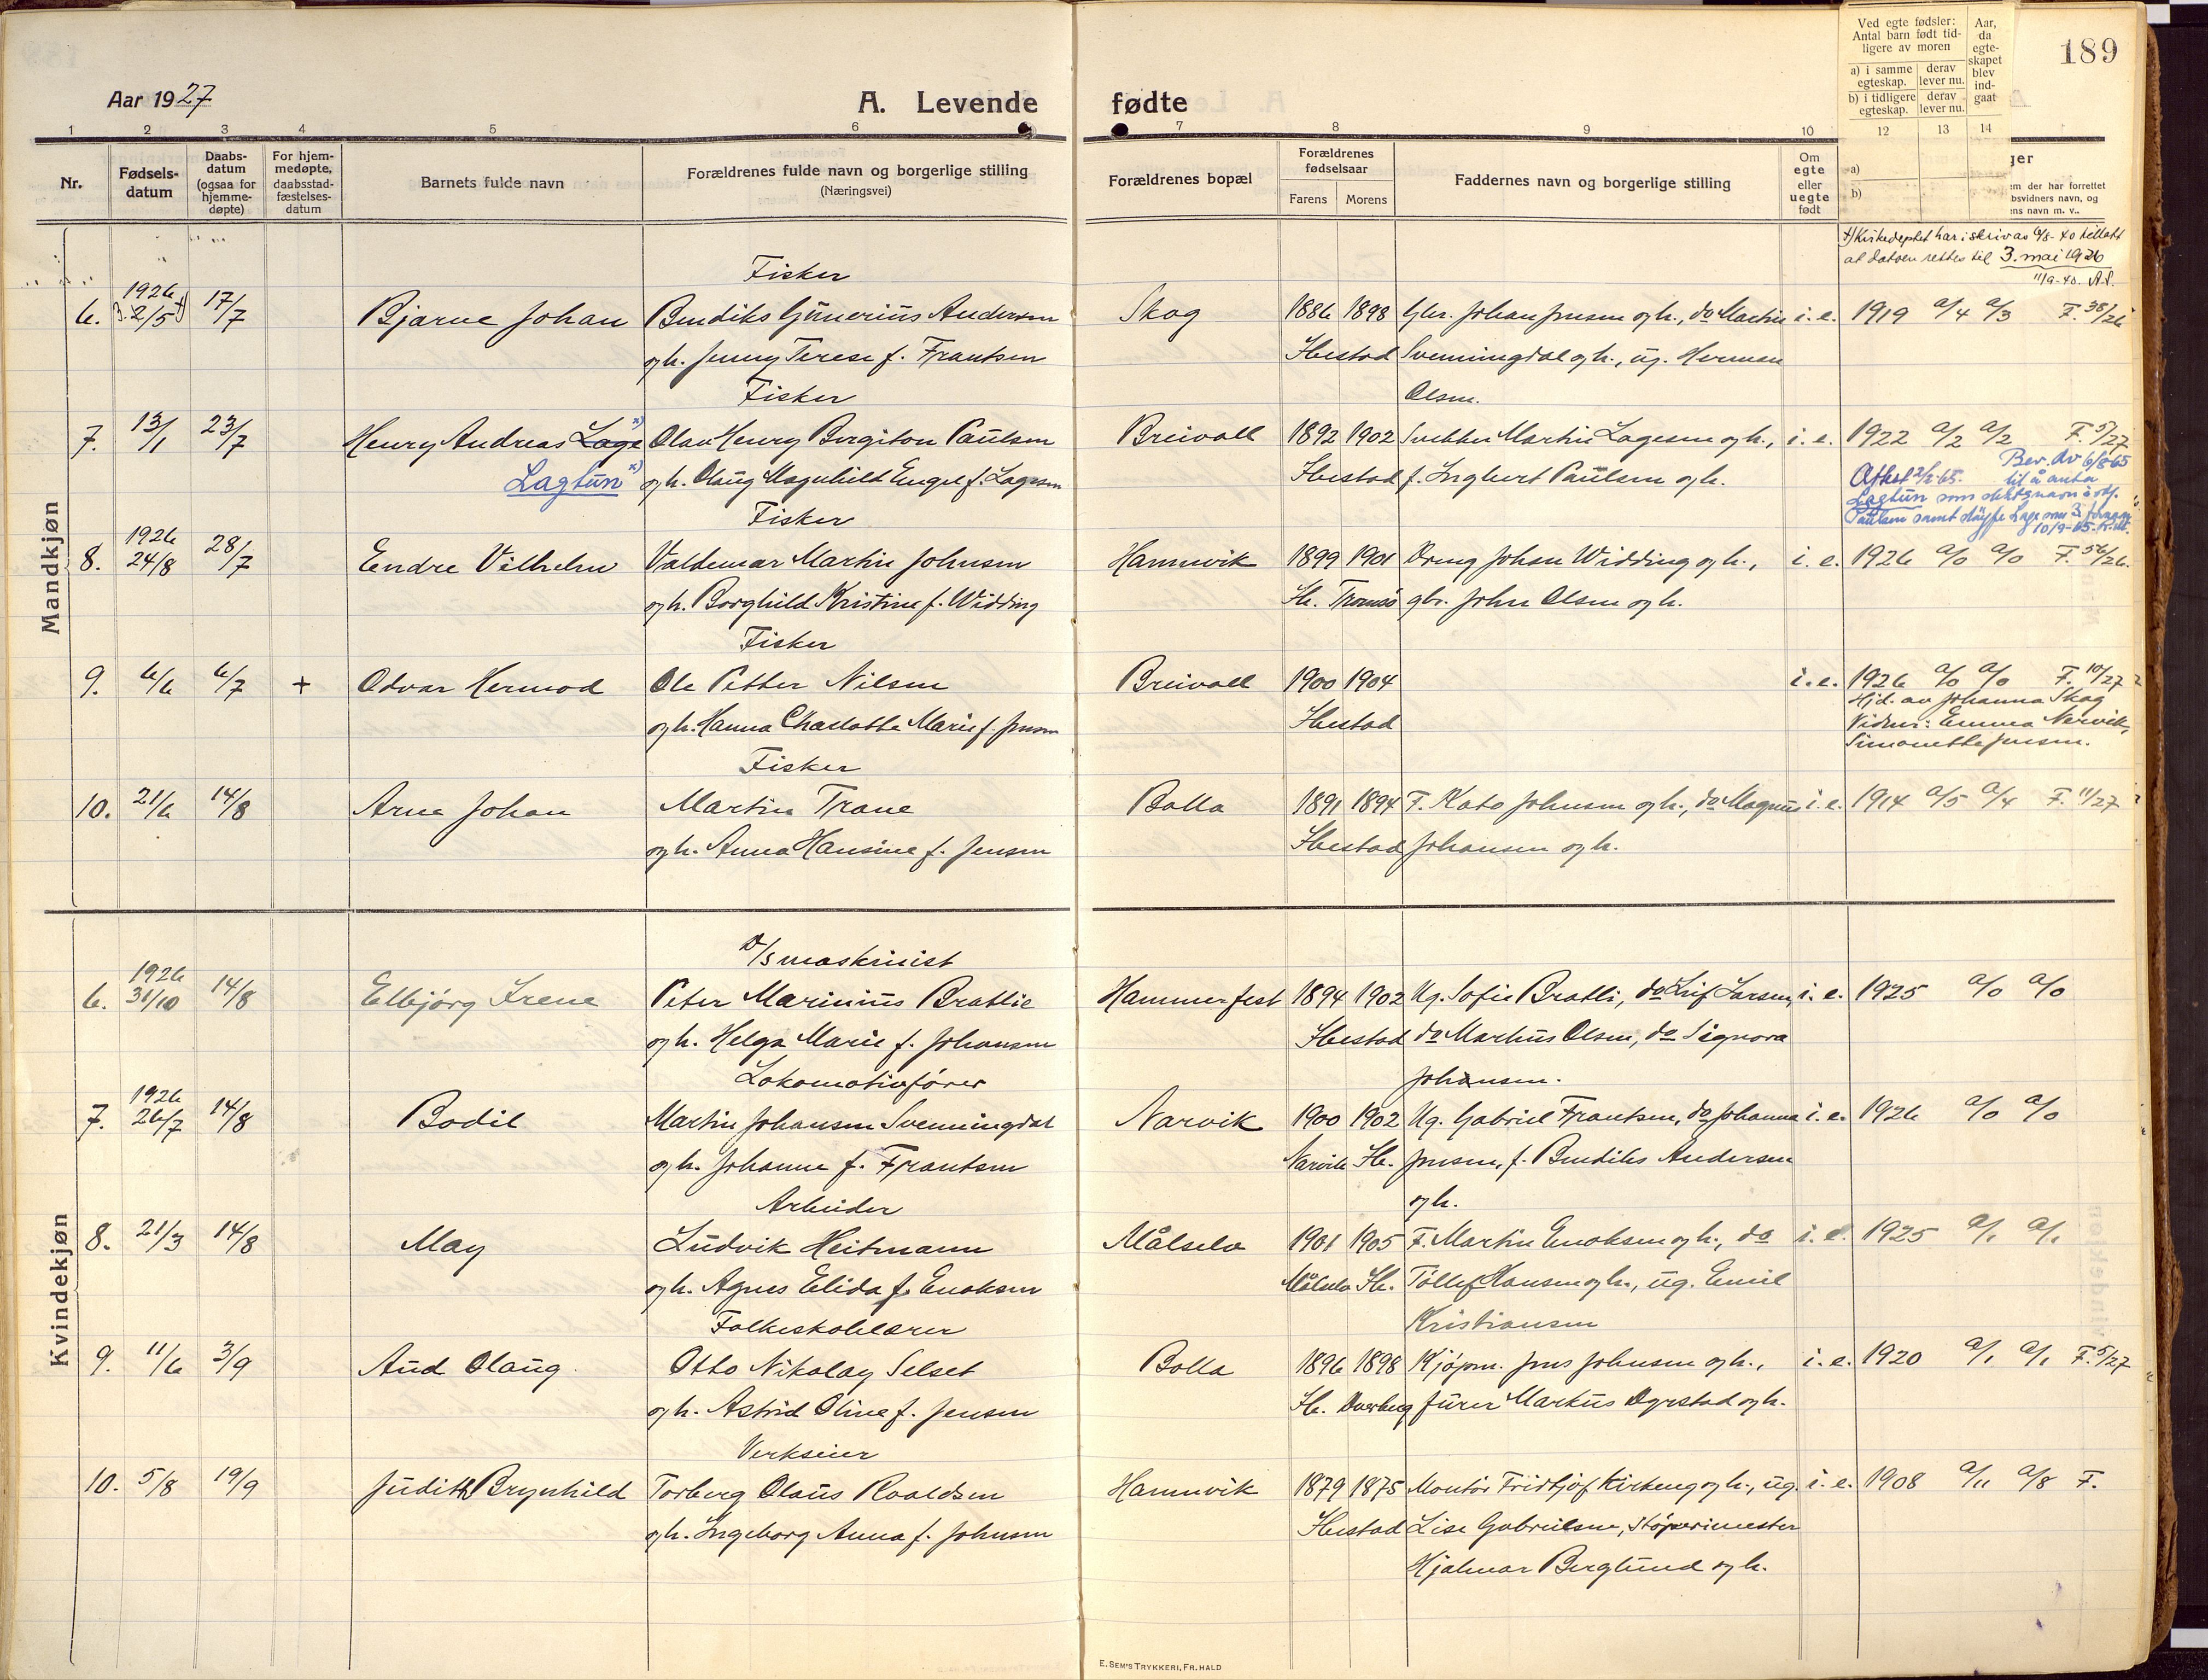 Aar 1927
A. Levende fødte
189
Ved egte fødsler: Antal barn født tidligere av moren
Aar, da egteskapet blev indgaat
a) i samme egteskap.
derav lever nu.
b) i tidligere egteskap.
derav lever nu.
1 2 3 4 5 6 7 8 9 10 12 13 14
Nr.
Fødsels-datum
Daabs-datum (ogsaa for hjemme-døpte)
For hjem-medøpte, daabsstad-fæstelses-datum
Barnets fulde navn
Forældrenes fulde navn og borgerlige stilling (Næringsvei)
Forældrenes bopæl
Forældrenes fødselsaar
Farens Morens
Faddernes navn og borgerlige stilling
Om egte eller uegte født
a)
b)
ger
em der har forrettet
bsvidners navn, og
ens navn m. v..
Mandkjøn
+) Kirkedeptet har i skriv av 6/8-40 tillatt
at datoen rettes til 3. mai 1926
11/9-40. A.S.
Fisker
6. 1926 2/5 +) 17/7 Bjarne Johan Bendiks Gunerius Andersen Skog 1886 1898 Gbr. Johan Jensen og h., do Martin i. e. 1919 a/4 a/3 F. 38/26
og h. Jenny Terese f. Frantsen Ibestad Svenningdal og h., ug. Herman
Fisker Olsen.
7. 13/1 23/7 Henry Andreas Lage x) Olav Henry Bergiton Paulsen Breivoll 1892 1902 Snekker Martin Lagesen og h., i. e. 1922 a/2 a/2 F. 5/27
Lagtun x) og h. Olaug Magnhild Engel f. Lagesen Ibestad f. Ingbert Paulsen og h.
Attest 2/2-65. Bev. av 6/8-65
til å anta
Lagtun som slektsnavn istf.
Paulsen samt sløyfe Lage som 3. fornavn
10/9-65.
Fisker
8. 1926 24/8 28/7 Endre Vilhelm Valdemar Martin Johnsen Hamnvik 1899 1901 Dreng Johan Widding og h., i. e. 1926 a/0 a/0 F. 56/26.
og h. Borghild Kristine f. Widding Ib. Tromsö gbr. John Olsen og h.
Fisker
9. 6/6 6/7 + Odvar Hermod Ole Petter Nilsen Breivoll 1900 1904 i. e. 1926 a/0 a/0 F. 10/27
og h. Hanna Charlotte Marie f. Jensen Ibestad
Hjd. av Johanna Skog
Vidner: Emma Nervik,
Simonette Jensen.
Fisker
10. 21/6 14/8 Arne Johan Martin Trane Bolla 1891 1894 F. Kato Johnsen og h., do Magnus i. e. 1914 a/5 a/4 F. 11/27
og h. Anna Hansine f. Jensen Ibestad Johansen og h.
Kvindekjøn
D/s maskinist
6. 1926 31/10 14/8 Elbjørg Irene Peter Marinius Brattlie Hammerfest 1894 1902 Ug. Sofie Bratli, do Leif Larsen, i. e. 1925 a/0 a/0
og h. Helga Marie f. Johansen Ibestad do Markus Olsen, do Signora
Lokomotivfører Johansen.
7. 1926 26/7 14/8 Bodil Martin Johansen Svenningdal Narvik 1900 1902 Ug. Gabriel Frantsen, do Johanna i. e. 1926 a/0 a/0
og h. Johanne f. Frantsen Narvik Ib. Jensen, f. Bendiks Andersen
Arbeider og h.
8. 21/3 14/8 May Ludvik Heitmann Målselv 1901 1905 F. Martin Enoksen og h., do i. e. 1925 a/1 a/1
og h. Agnes Elida f. Enoksen Målselv Ib. Tollef Hansen og h., ug. Emil
Folkeskolelærer Kristiansen
9. 11/6 3/9 Aud Olaug. Otto Nikolay Selset Bolla 1896 1898 Kjøpm. Jens Johnsen og h., i. e. 1920 a/1 a/1 F. 5/27
og h. Astrid Oline f. Jensen Ib. Dverberg furer Markus Dyrstad og h.
Verkseier
10. 5/8 19/9 Judith Brynhild Torberg Olaus Roaldsen Hamnvik 1879 1875 Montör Fridtjof Kirkeng og h., ug. i. e. 1908 a/11 a/8 F.
og h. Ingeborg Anna f. Johnsen Ibestad Lise Gabrielsen, støperimester
Hjalmar Berglund og h.
E. SEM'S TRYKKERI, FR.HALD